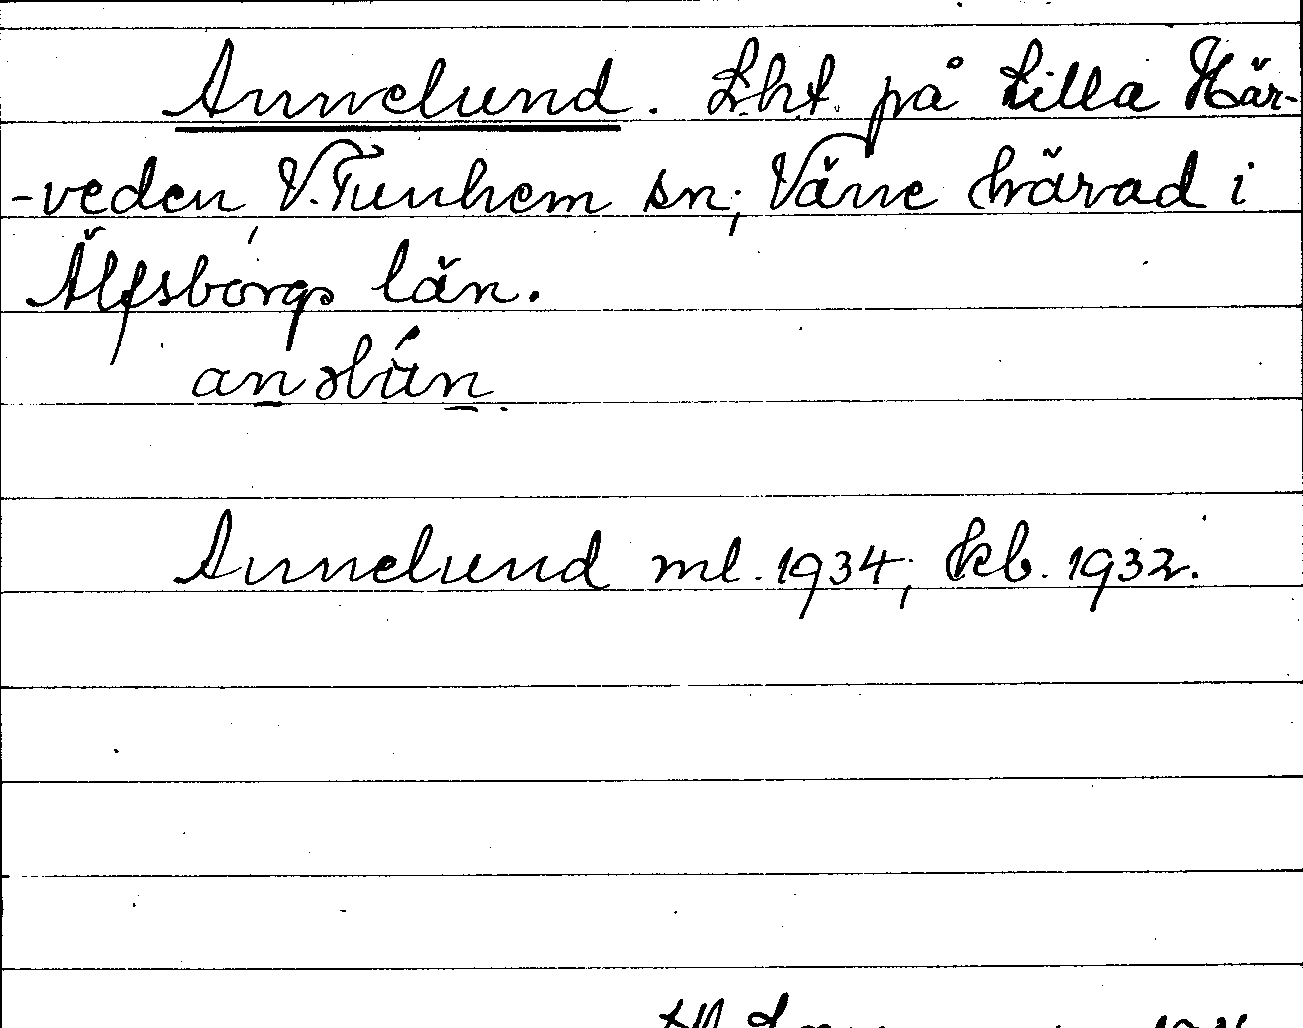 Annelund. Lht. på Lilla Här-
-veden, V. Tunhem sn; Väne härad i
Älfsborgs län.
anəlún
Annelund ml. 1934; kb. 1932.